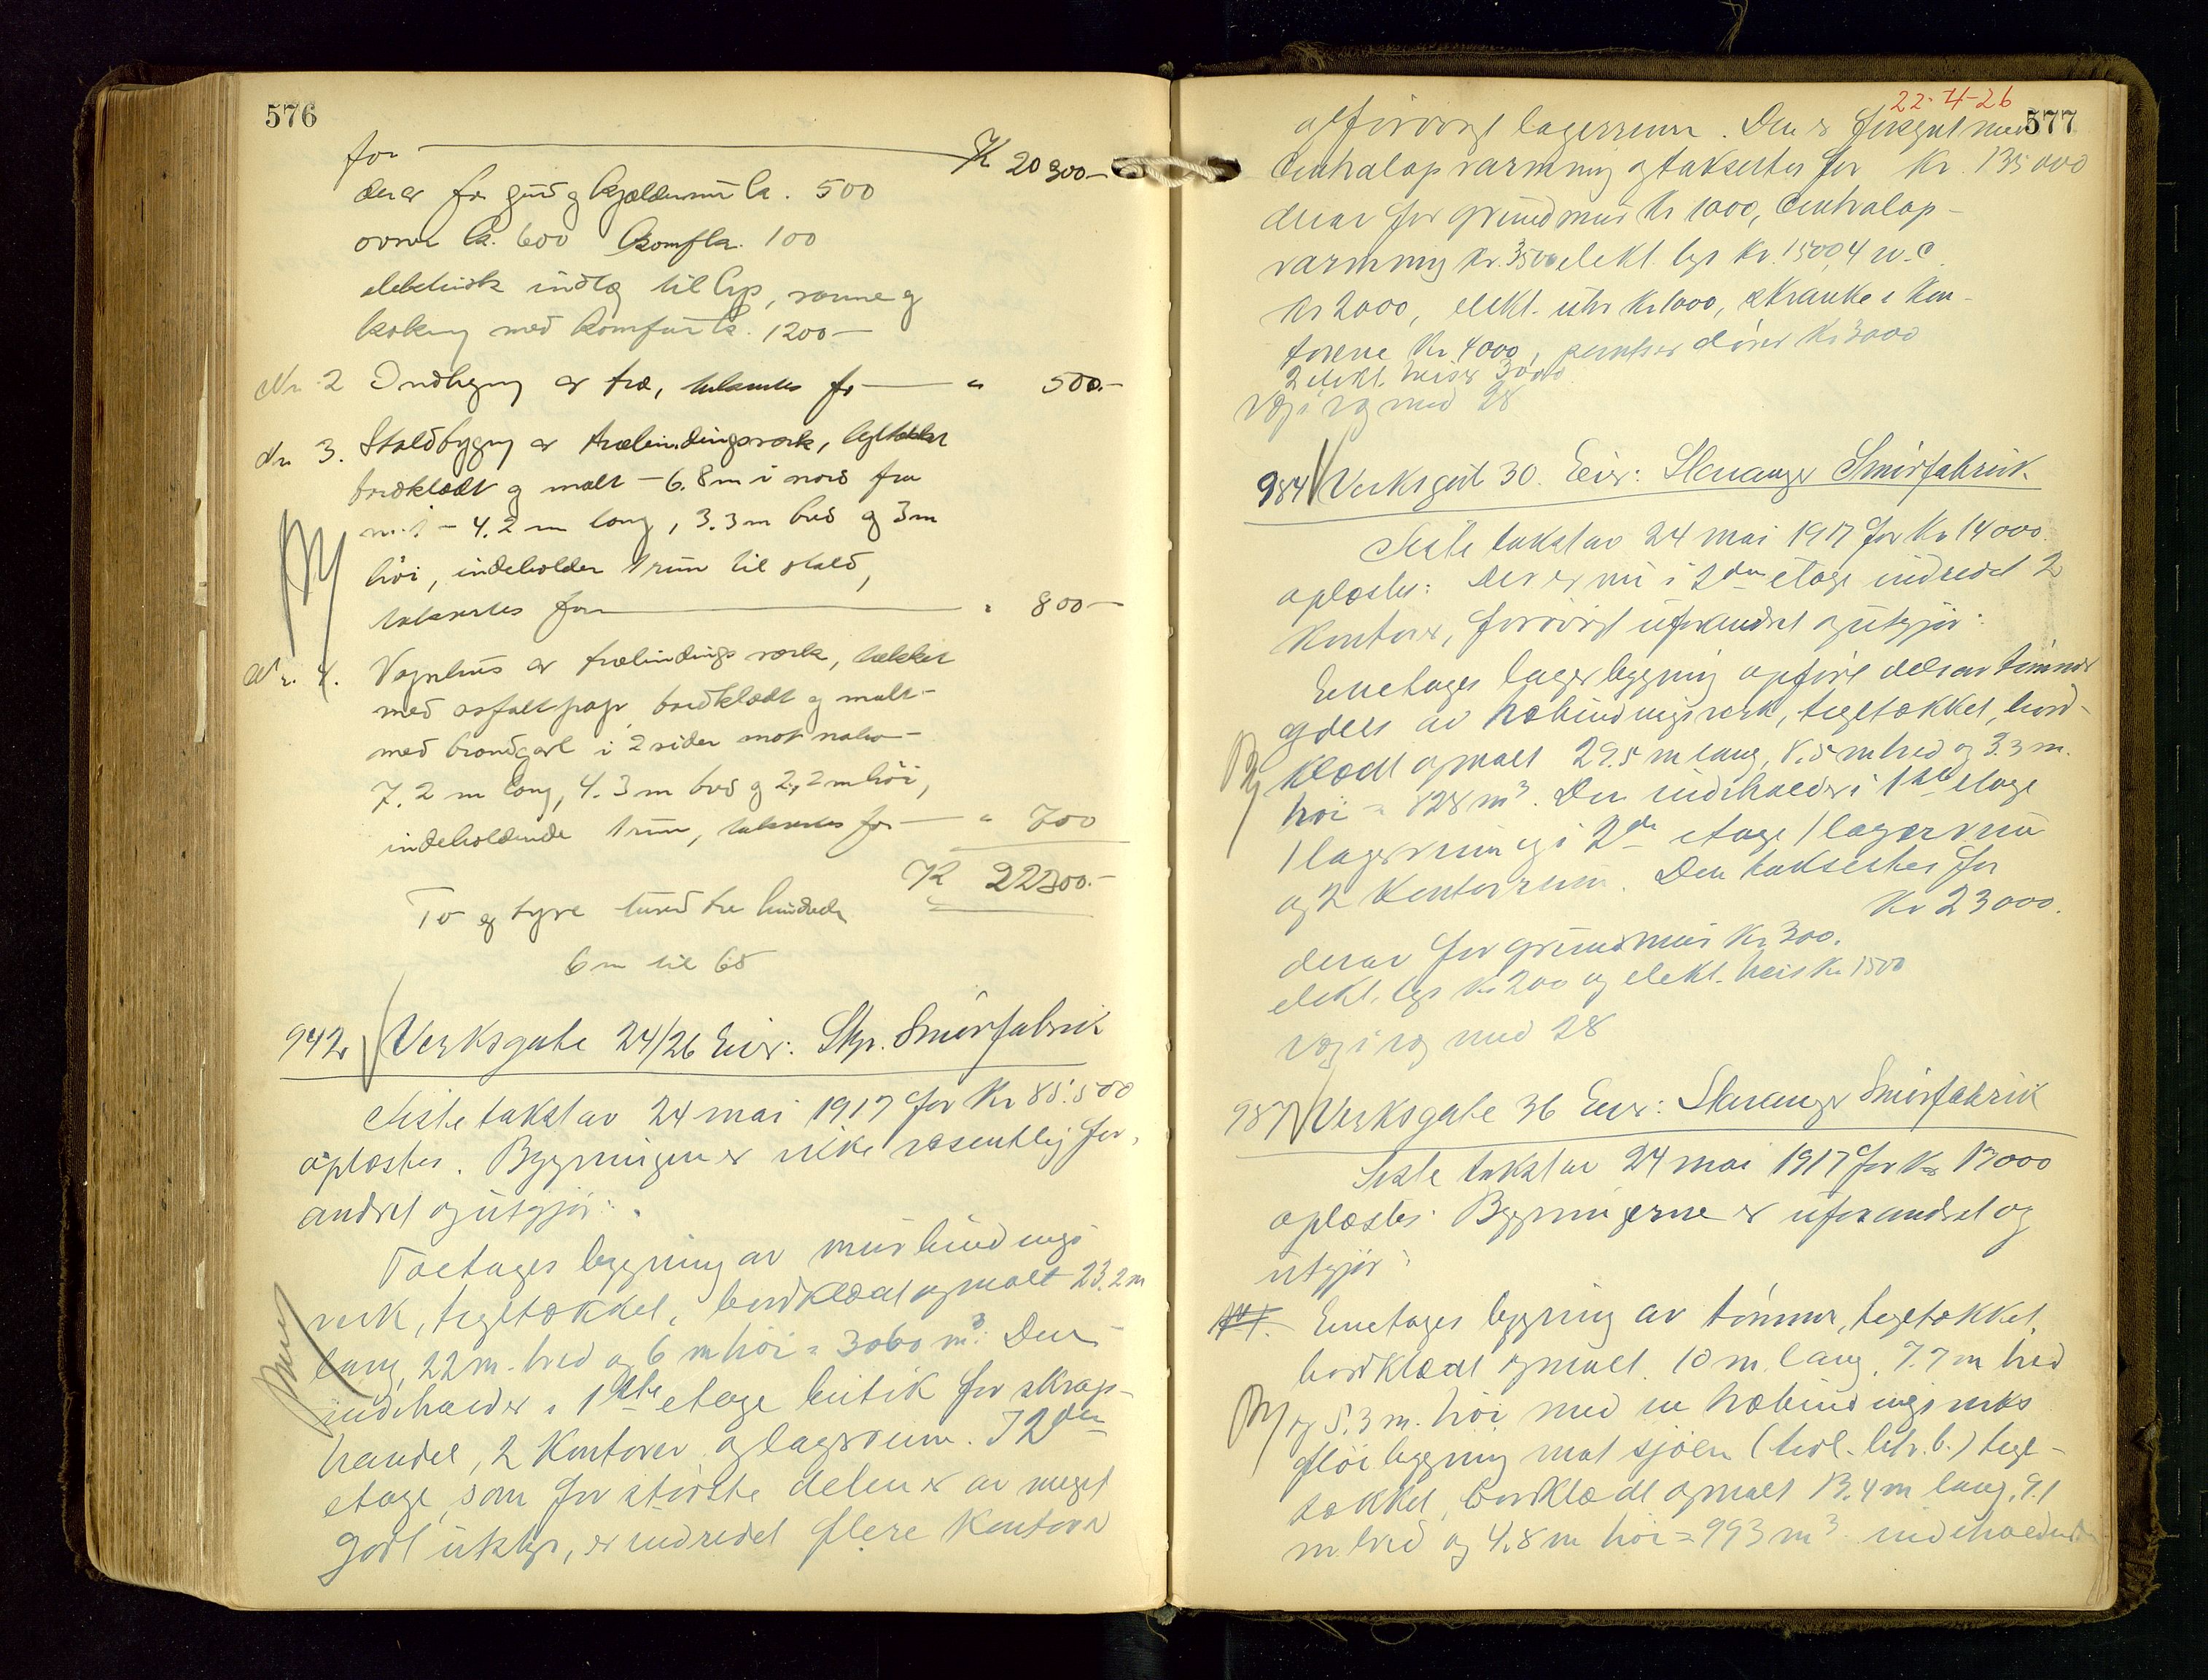 576
for K 20300.–
derav for grund og kjældermur kr. 500
ovner kr. 600 Komfkr. 100
elektrisk indlæg til lys, varme og
kokning med komfur kr. 1200 –
Nr. 2 Indhegning av træ, taksertes for " 500.–
Nr. 3. Staldbygning av træbindingsverk, tegltækket
bordklædt og malt – 6.8 m i nord fra
nr. 1 – 4.2 m lang, 3.3 m bred og 3 m
høi, indeholder 1 rum til stald,
taksertes for " 800 –
Nr. 4. Vognhus av træbindings verk, tækket
med asfaltpap, bordklædt og malt –
med brandgavl i 2 sider mot nabo –
7.2 m lang, 4.3 m bred og 2,2 m høi,
indeholdende 1 rum, taksertes for " 700
K 22300.–
To og tyve tused tre hundrede
6 m til 68
942. Verksgate 24/26 Eier: Stgr. Smörfabrik
Siste takst av 24 mai 1917 for Kr 85.500
oplæstes. Bygningen er ikke væsentlig for-
andret og utgjör:
Toetages bygning av murbindings
verk, tegltækket, bordklædt og malt 23.2 m
lang, 22 m. bred og 6 m höi = 3060 m³. Den
indeholder i 1ste etage butik for skrap-
handel, 2 Kontorer og lagerrum. I 2den
etage, som for störste delen er av meget
godt utstyr, er indredet flere Kontorer
22-4-26
577
og forövrigt lagerrum. Den er forsynt med
Centralopvarmning og taksertes for Kr. 135000
derav for grundmur Kr 1000, Centralop-
varmning Kr. 3500 elekt. lys Kr. 1500, 4 w.c.
Kr 2000, elekt. uhr Kr. 1000, skranke i Kon-
torene Kr 4000, pantser dörer Kr 3000
2 elekt. heiser 3000
væg i væg med 28
984 Verksgat 30. Eier: Stavanger Smörfabrik.
Siste takst av 24 mai 1917 for Kr 14000
oplæstes: Der er nu i 2den etage indredet 2
Kontorer, forövrigt uforandret og utgjör:
Enetages lagerbygning opfört dels av tömmer
og dels av træbindingsverk, tegltækket, bord-
klædt og malt 29.5 m lang, 8.5 m bred og 3.3 m.
höi = 828 m³. Den indeholder i 1ste etage
1 lagerrum og i 2de etage 1 lagerrum
og 2 Kontorrum. Den taksertes for
Kr 23000.
derav for grundmur Kr 300.
elekt. lys Kr 200 og elekt. heis Kr 1500
væg i væg med 28
987 Verksgate 36 Eier: Stavanger Smörfabrik
Siste takst av 24 mai 1917 for Kr 17000
oplæstes: Bygningerne er uforandret og
utgjör:
Enetages bygning av tömmer, tegltækket,
bordklædt og malt. 10 m. lang, 7.7 m bred
og 5.3 m. höi med en træbindingsverks
flöibygning mot sjöen (tidl. litr. b.) tegl-
tækket, bordklædt og malt 13.4 m lang, 9.1
m. bred og 4.8 m höi = 993 m³ indeholdende